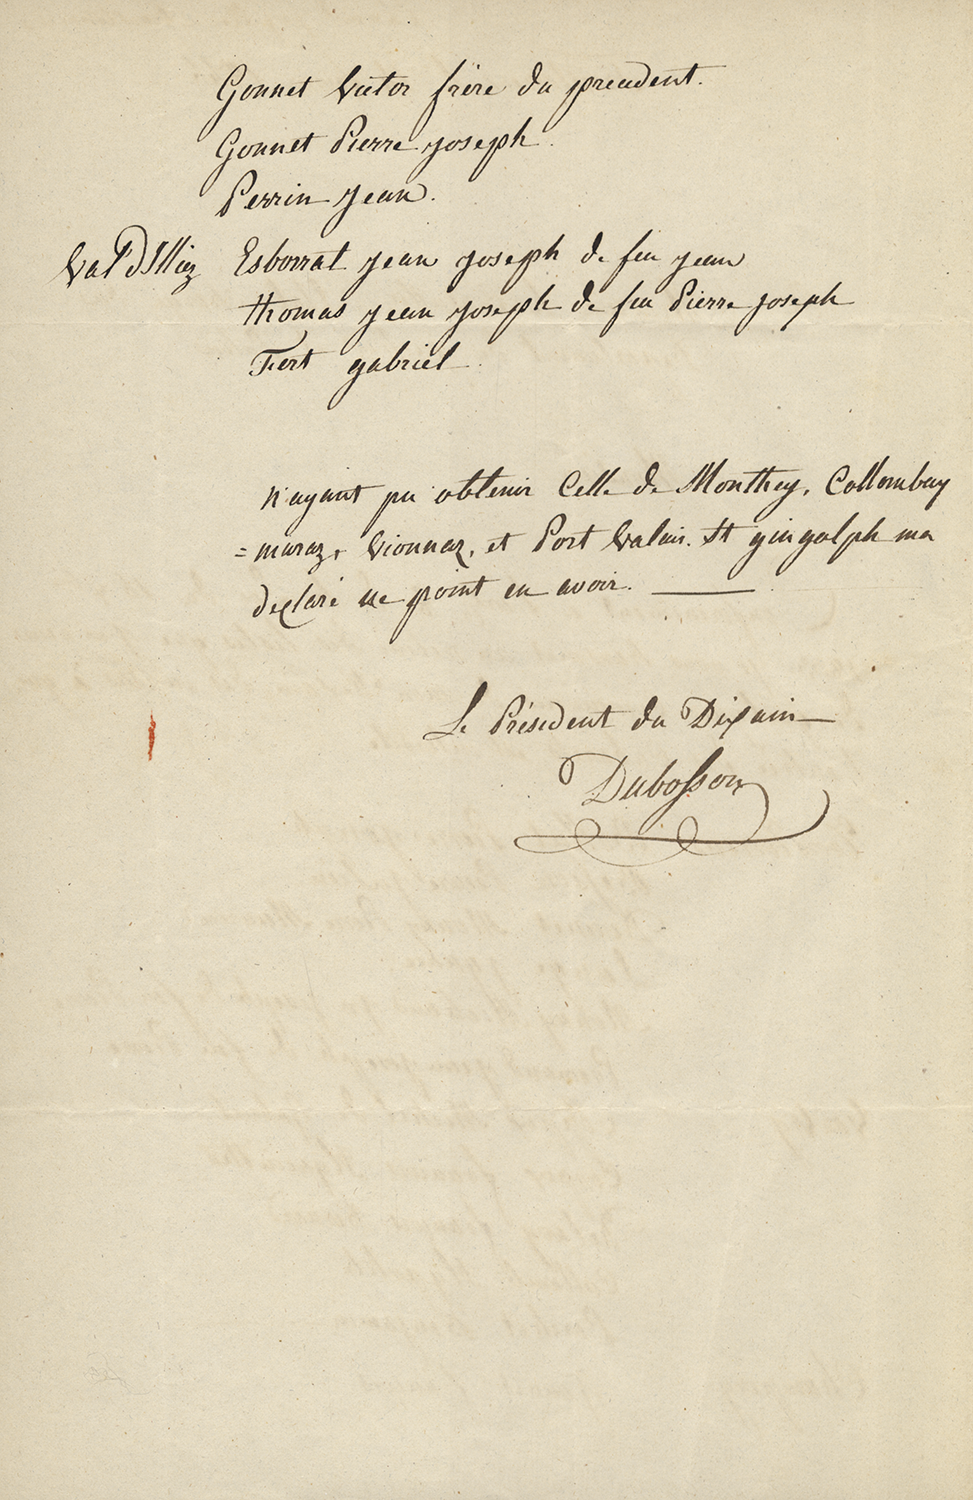 Gonnet Victor frère du precedent.
Gonnet Pierre joseph.
Perrin jean.
Val d'Illiez Esborrat jean joseph de feu jean
thomas jean joseph de feu Pierre joseph
Fert gabriel.
n'ayant pu obtenir Celle de Monthey, Collombey
=muraz, Vionnaz, et Port Valais. St gingolph ma
declaré ne point en avoir.
Le Président du Dixain
Dubosson